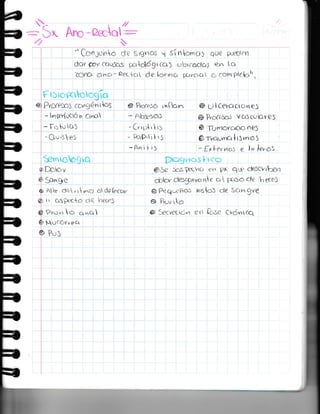 Sx Ano-Rectal
"Conjunto de signos y síntomas que pueden
dar por causas patológicas ubicadas en la
zona ano-rectal de forma parcial o completa".
Fisiopatología
Procesos congénitos
- Imperfección anal
- Fístulas
- Quistes
Proceso inflam
- Abscesos
- Criptitis
- Papilitis
- Anitis
Ulceraciones
Procesos vasculares
Tumoraciones
Traumatismos
- Externos e Internos
Semiología
Dolor
Sangre
Alt del ritmo al defecar
" aspecto de heces
Prurito anal
Mucorrea
Pus
Diagnóstico
Se sospecha en px que describan
dolor desgarrante al paso de heces
Pequeños restos de sangre
Prurito
Secreción en fase crónica